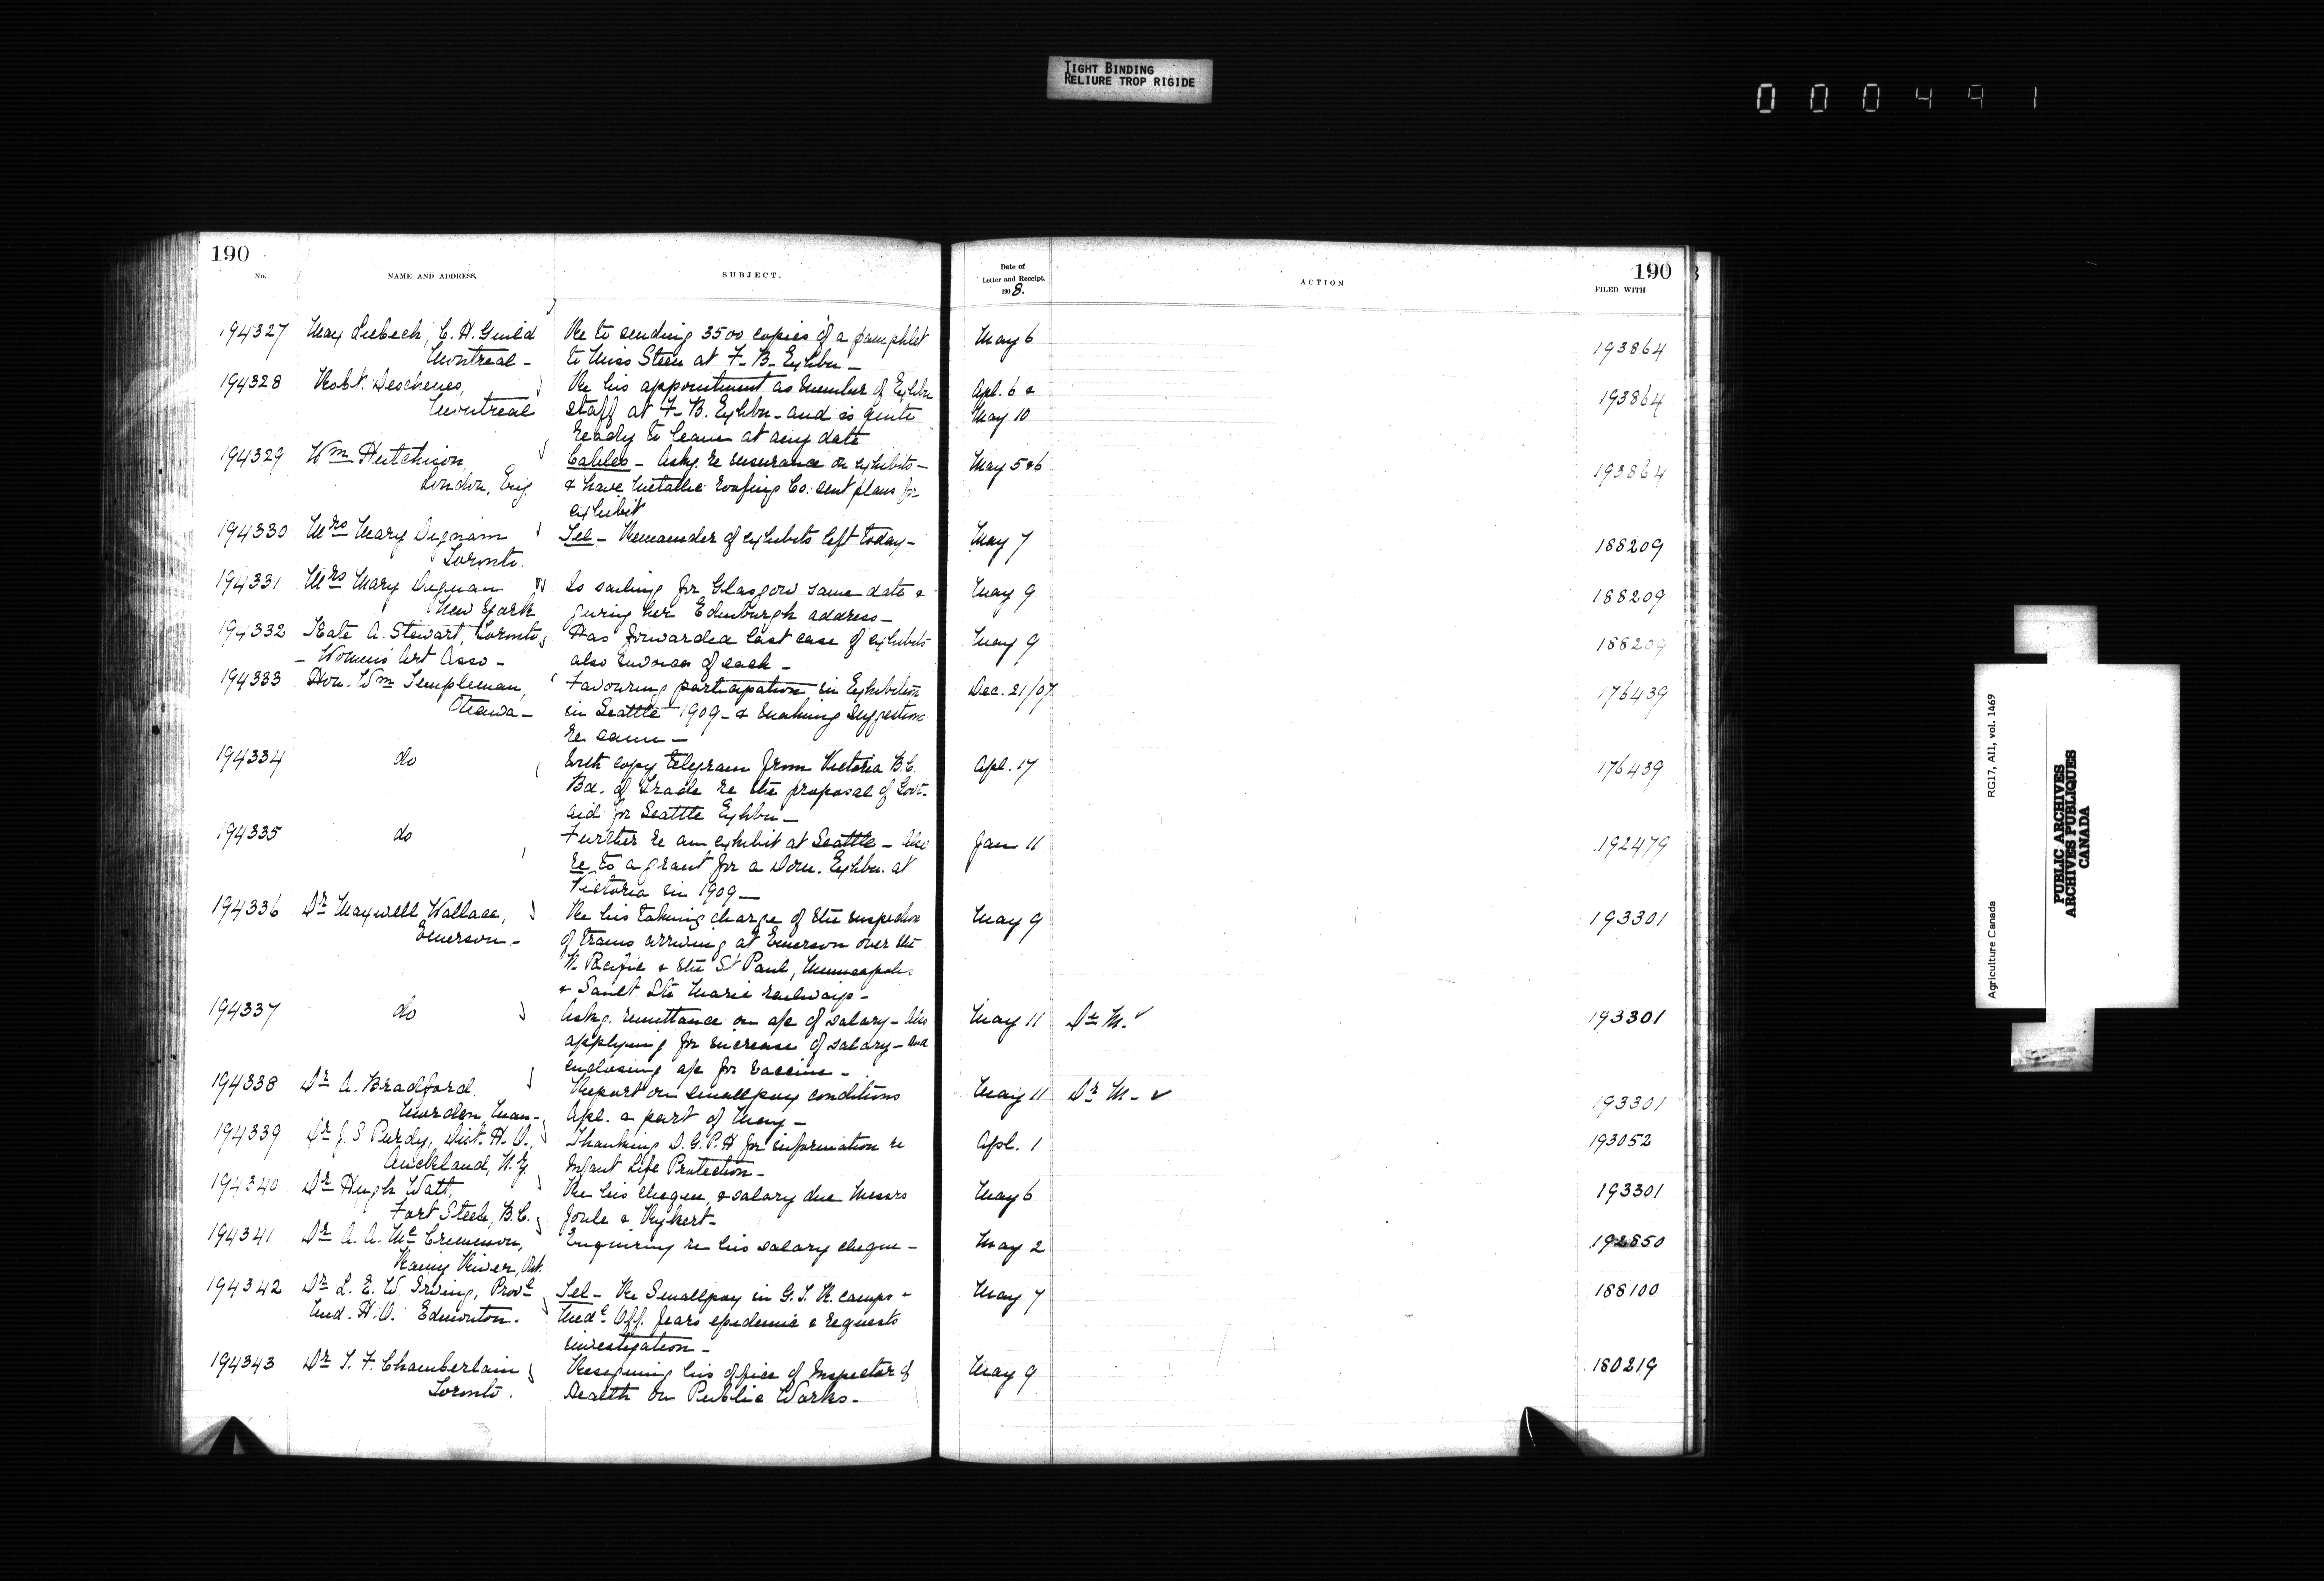 TIGHT BINDING
RELIURE TROP RIGIDE
000491
190
No.
NAME AND ADDRESS.
SUBJECT.
Date of
Letter and Receipt.
1908.
ACTION
190
FILED WITH
194327 Max Liebech, C. H. Guild Re to sending 3500 copies of a pamphlet May 6 193864
Montreal - to Miss Steen at F- B- Exhbn -
194328 Robt. Deschenes, Re his appointment as member of Exhbn Apl. 6 & 193864
Montreal staff at F- B. Exhbn - and is quite May 10
ready to leave at any date
194329 Wm Hutchison, Cables - Askg. re insurance on exhibits - May 5&6 193864
London, Eng & have Metallic Roofing Co. sent plans for
exhibit
194330 Mrs Mary Dignam Tel - Remainder of exhibits left today - May 7 188209
Toronto.
194331 Mrs Mary Dignam Is sailing for Glasgow same date & May 9 188209
New York giving her Edinburgh address -
194332 Kate A. Stewart, Toronto, Has forwarded last case of exhibits May 9 188209
- Women's Art Asso - also invoices of each -
194333 Hon. Wm Templeman, Favouring participation in Exhibition Dec. 21/07 176439
Ottawa - in Seattle 1909 - & making suggestions
re same -
194334 do With copy telegram from Victoria B.C. Apl. 17 176439
Bd. of Trade re the proposal of Govt.
aid for Seattle Exhbn -
194335 do Further re an exhibit at Seattle - Also Jan 11 192479
re to a grant for a Dom. Exhbn. at
Victoria in 1909 -
194336 Dr Maxwell Wallace, Re his taking charge of the inspection May 9 193301
Emerson - of trains arriving at Emerson over the
N. Pacific & the St Paul, Minneapolis
& Sault Ste Marie railways -
194337 do Askg. remittance on a/c of salary - Also May 11 Dr M. ✓ 193301
applying for increase of salary - and
enclosing a/c for vaccine -
194338 Dr A. Bradford. Report on smallpox conditions May 11 Dr M - ✓ 193301
Morden, Man - Apl. & part of May -
194339 Dr J. S Purdy, Dist. H. O., Thanking D. G. P. H for information re Apl. 1 193052
Auckland, N. Z. Infant Life Protection -
194340 Dr Hugh Watt, Re his cheque, & salary due Messrs May 6 193301
Fort Steele, B.C. Joule & Rykert -
194341 Dr A. A. Mc Crimmon, Enquiring re his salary cheque - May 2 192850
Rainy River, Ont.
194342 Dr L. E. W. Irving, Provl Tel - Re Smallpox in G. T. R. camps - May 7 188100
Med. H. O. Edmonton. Medl Off. fears epidemic & requests
investigation -
194343 Dr T. F. Chamberlain Resigning his office of Inspector of May 9 180219
Toronto. Health on Public Works -
Agriculture Canada
RG17, AII, vol. 1469
PUBLIC ARCHIVES
ARCHIVES PUBLIQUES
CANADA